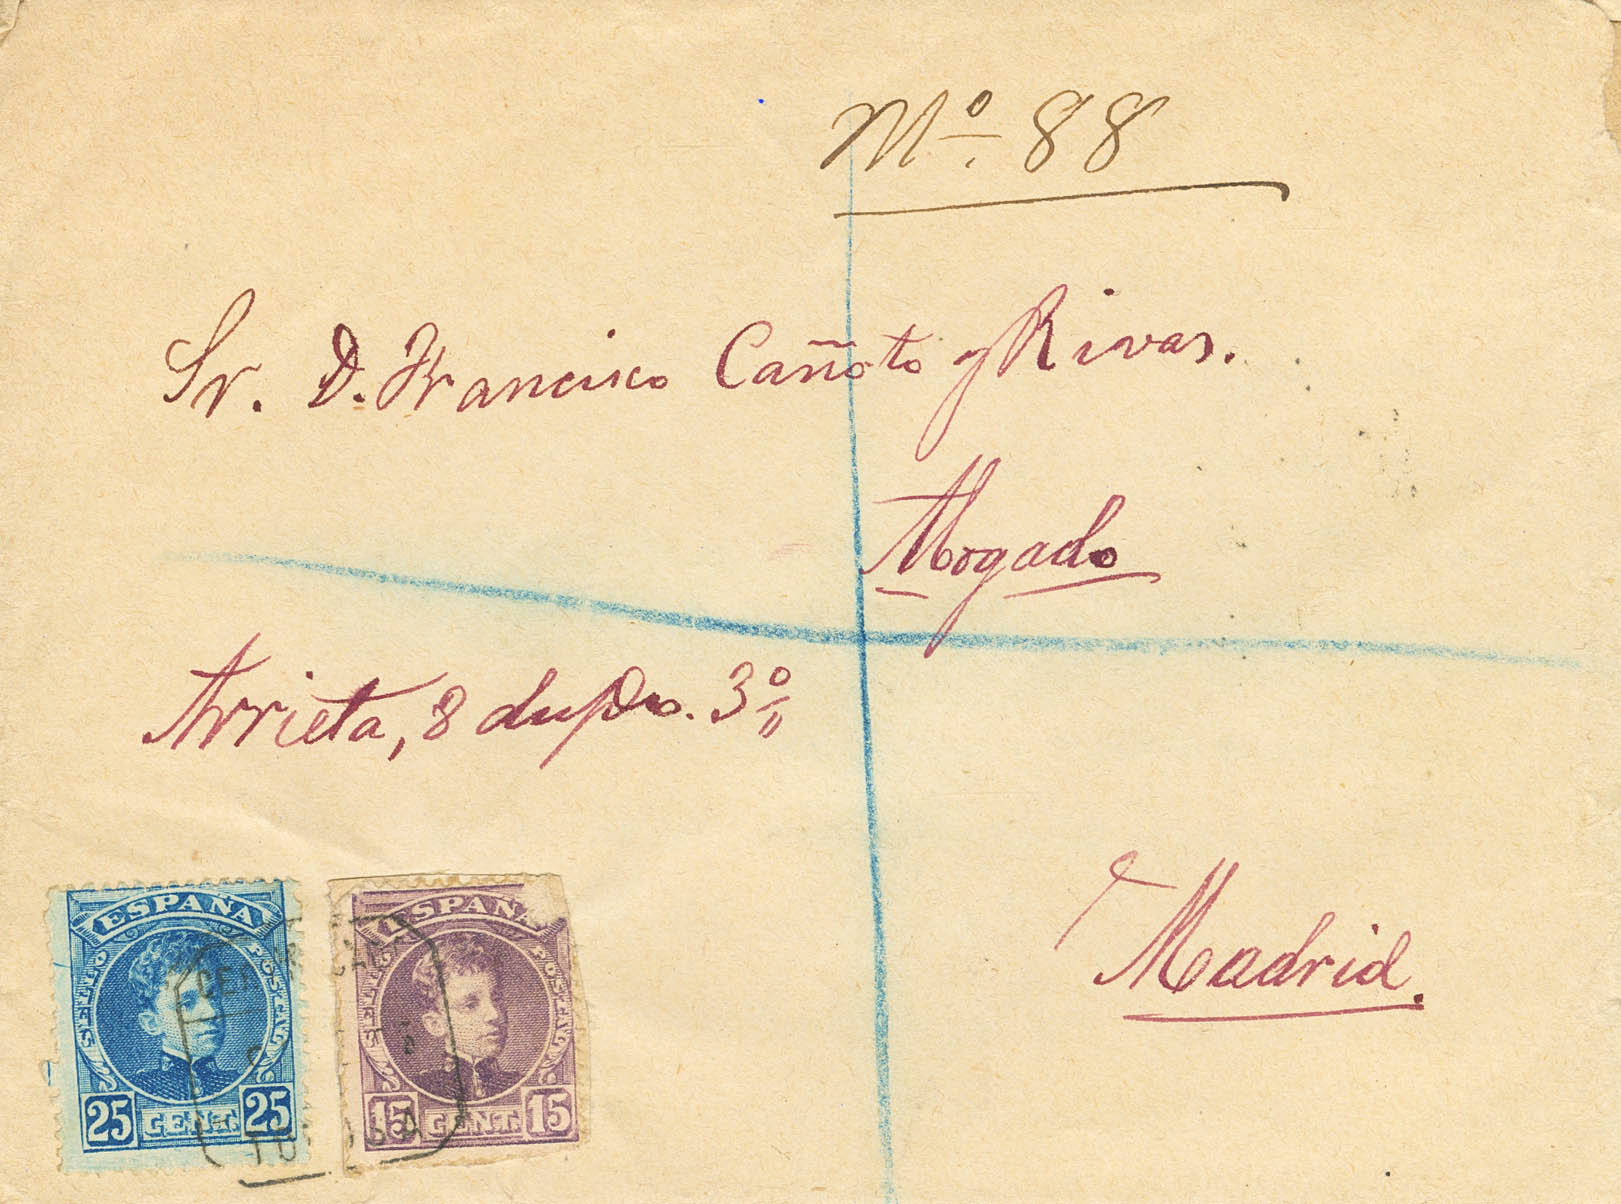 Nº 88
Sr. D. Francisco Cañoto y Rivas.
Abogado
Arrieta, 8 dupdo. 3º
Madrid.
ESPAÑA
SELLO POSTAL
25 CENT. 25
ESPAÑA
POSTAL
15 CENT. 15